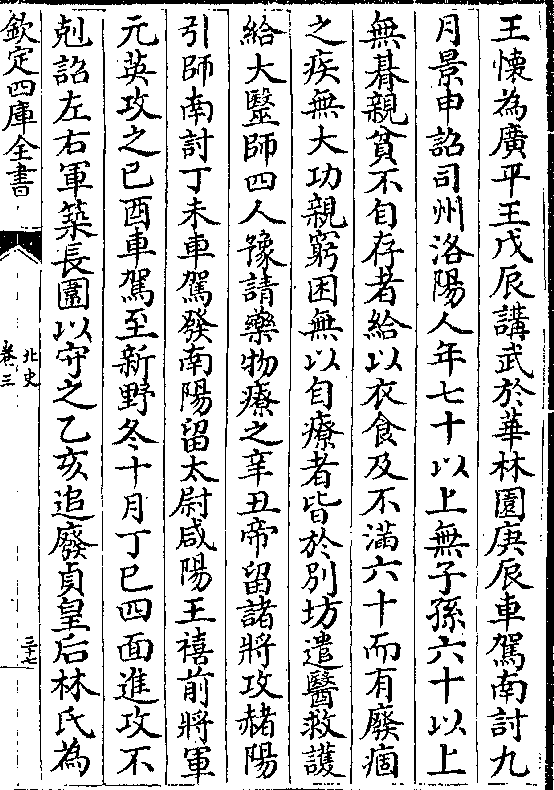 王懷為廣平王戊辰講武於華林園庚辰車駕南討九
月景申詔司州洛陽人年七十以上無子孫六十以上
無朞親貧不自存者給以衣食及不滿六十而有廢痼
之疾無大功親窮困無以自療者皆於別坊遣醫救護
給大毉師四人豫請藥物療之辛丑帝留諸將攻赭陽
引師南討丁未車駕發南陽留太尉咸陽王禧前將軍
元英攻之己酉車駕至新野冬十月丁巳四面進攻不
剋詔左右軍築長圍以守之乙亥追廢貞皇后林氏為
欽定四庫全書
北史
卷三
三十七